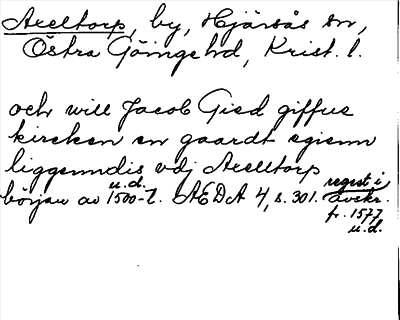 Axeltorp, by, Hjärsås sn,
Östra Göinge hd, Krist. l.
och will Jacob Gied giffue
kircken en gaardt egienn
liggenndis vdj Axelltorp
u.d. regest i
början av 1500-t. AEDA 4, s. 301. avskr.
fr. 1577
u.d.